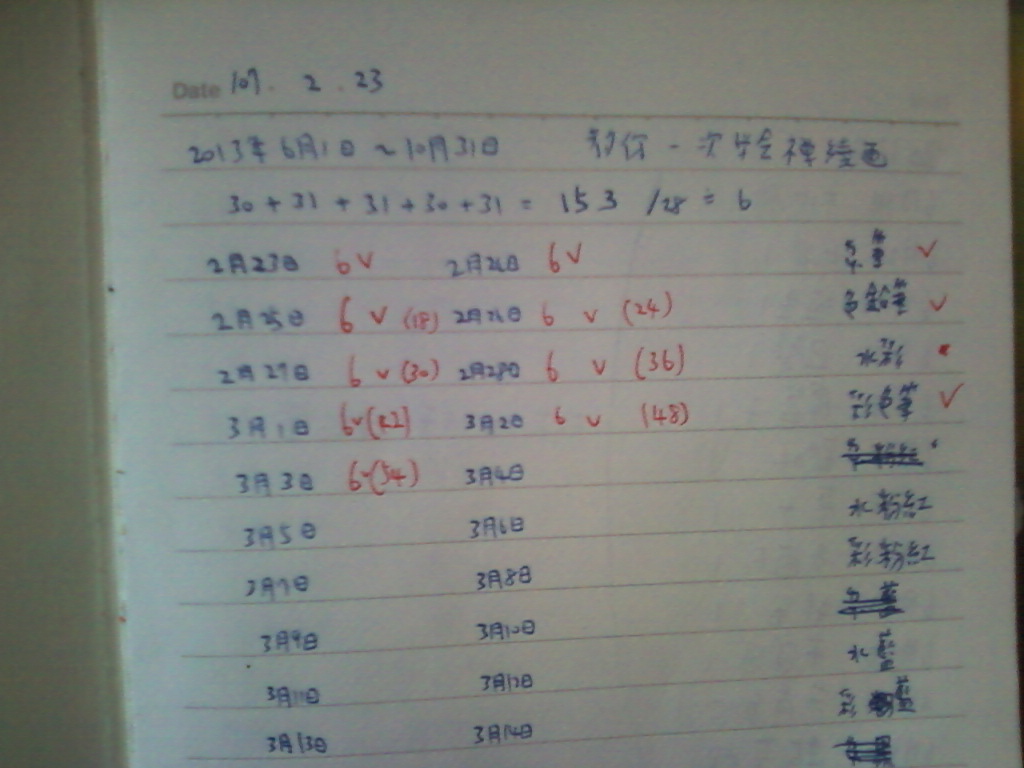 Date 107. 2. 23
2013年6月1日~10月31日 一次 禪繪畫
30+31+31+30+31 = 153 /28 ≒ 6
2月23日 6 v 2月24日 6 v ✓
2月25日 6 v (18) 2月26日 6 v (24) 色鉛筆 ✓
2月27日 6 v (30) 2月28日 6 v (36) 水彩
3月1日 6 v (42) 3月2日 6 v (48) 彩色筆 ✓
3月3日 6 v (54) 3月4日
3月5日 3月6日 水粉紅
3月7日 3月8日 彩粉紅
3月9日 3月10日
3月11日 3月12日 水
3月13日 3月14日 彩